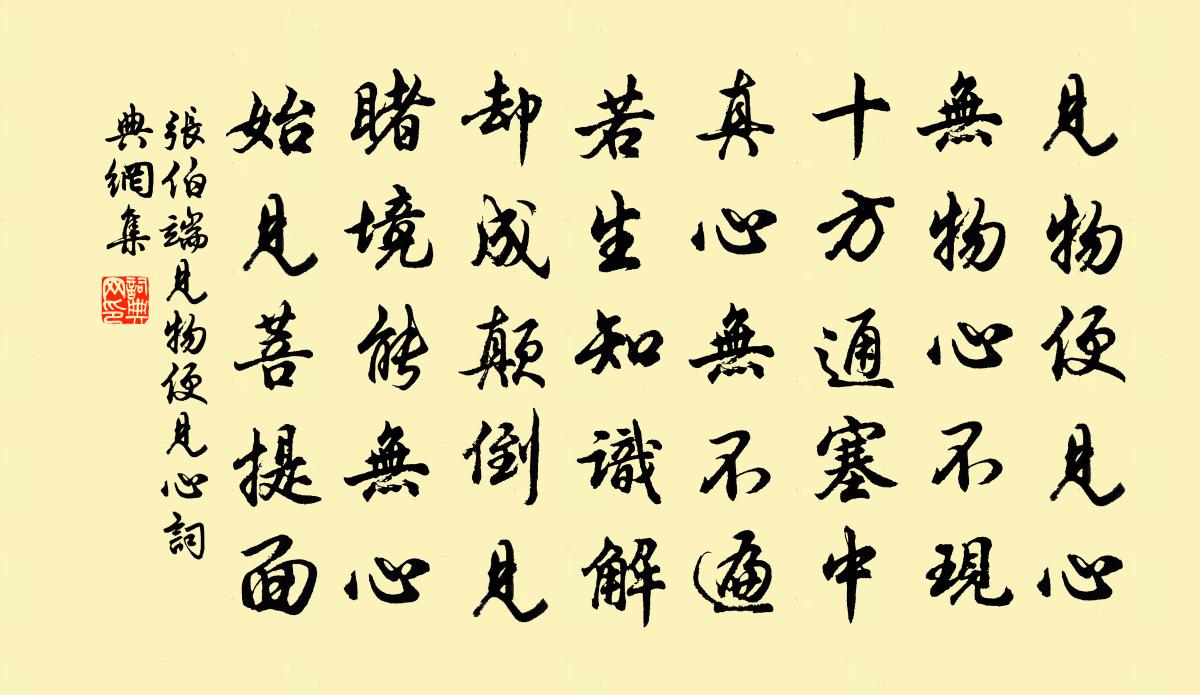 見物便見心
無物心不現
十方通塞中
真心無不遍
若生知識解
却成顛倒見
睹境能無心
始見菩提面
張伯端見物便見心詞
典網集
詞典
网印